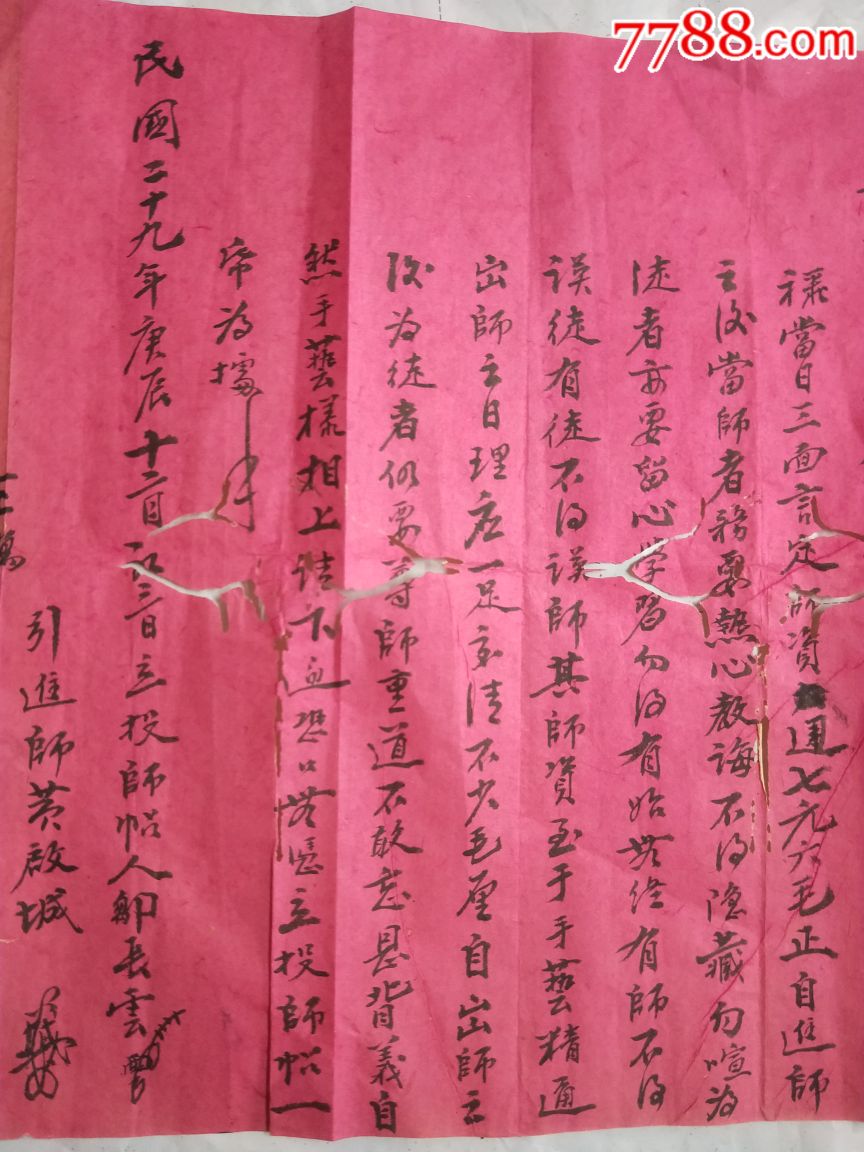 7788.com
當日三面言定師資通七元六毛正自進師
之後當師者務要熱心教誨不得隐藏勿喧為
徒者亦要留心学習勿得有始無終有師不得
誤徒有徒不得誤師其師資至于手藝精通
出師之日理应一足交清不少毛厘自出師之
後為徒者仍要尊師重道不敢忘恩背義自
然手藝樣相上
口無憑立投師帖一
帋為據
民國二十九年庚辰十二月初三日立投師帖人
長雲
引進師黄啟城